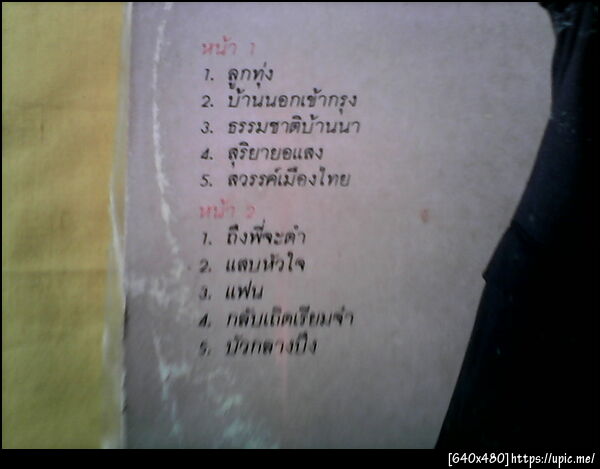 หน้า 1
1. ลูกทุ่ง
2. บ้านนอกเข้ากรุง
3. ธรรมชาติบ้านนา
4. สุริยายอแสง
5. สวรรค์เมืองไทย
หน้า 2
1. ถึงพี่จะดำ
2. แสบหัวใจ
3. แฟน
4. กลับเถิดเรียมจ๋า
5. บัวกลางบึง
[640x480]https://upic.me/